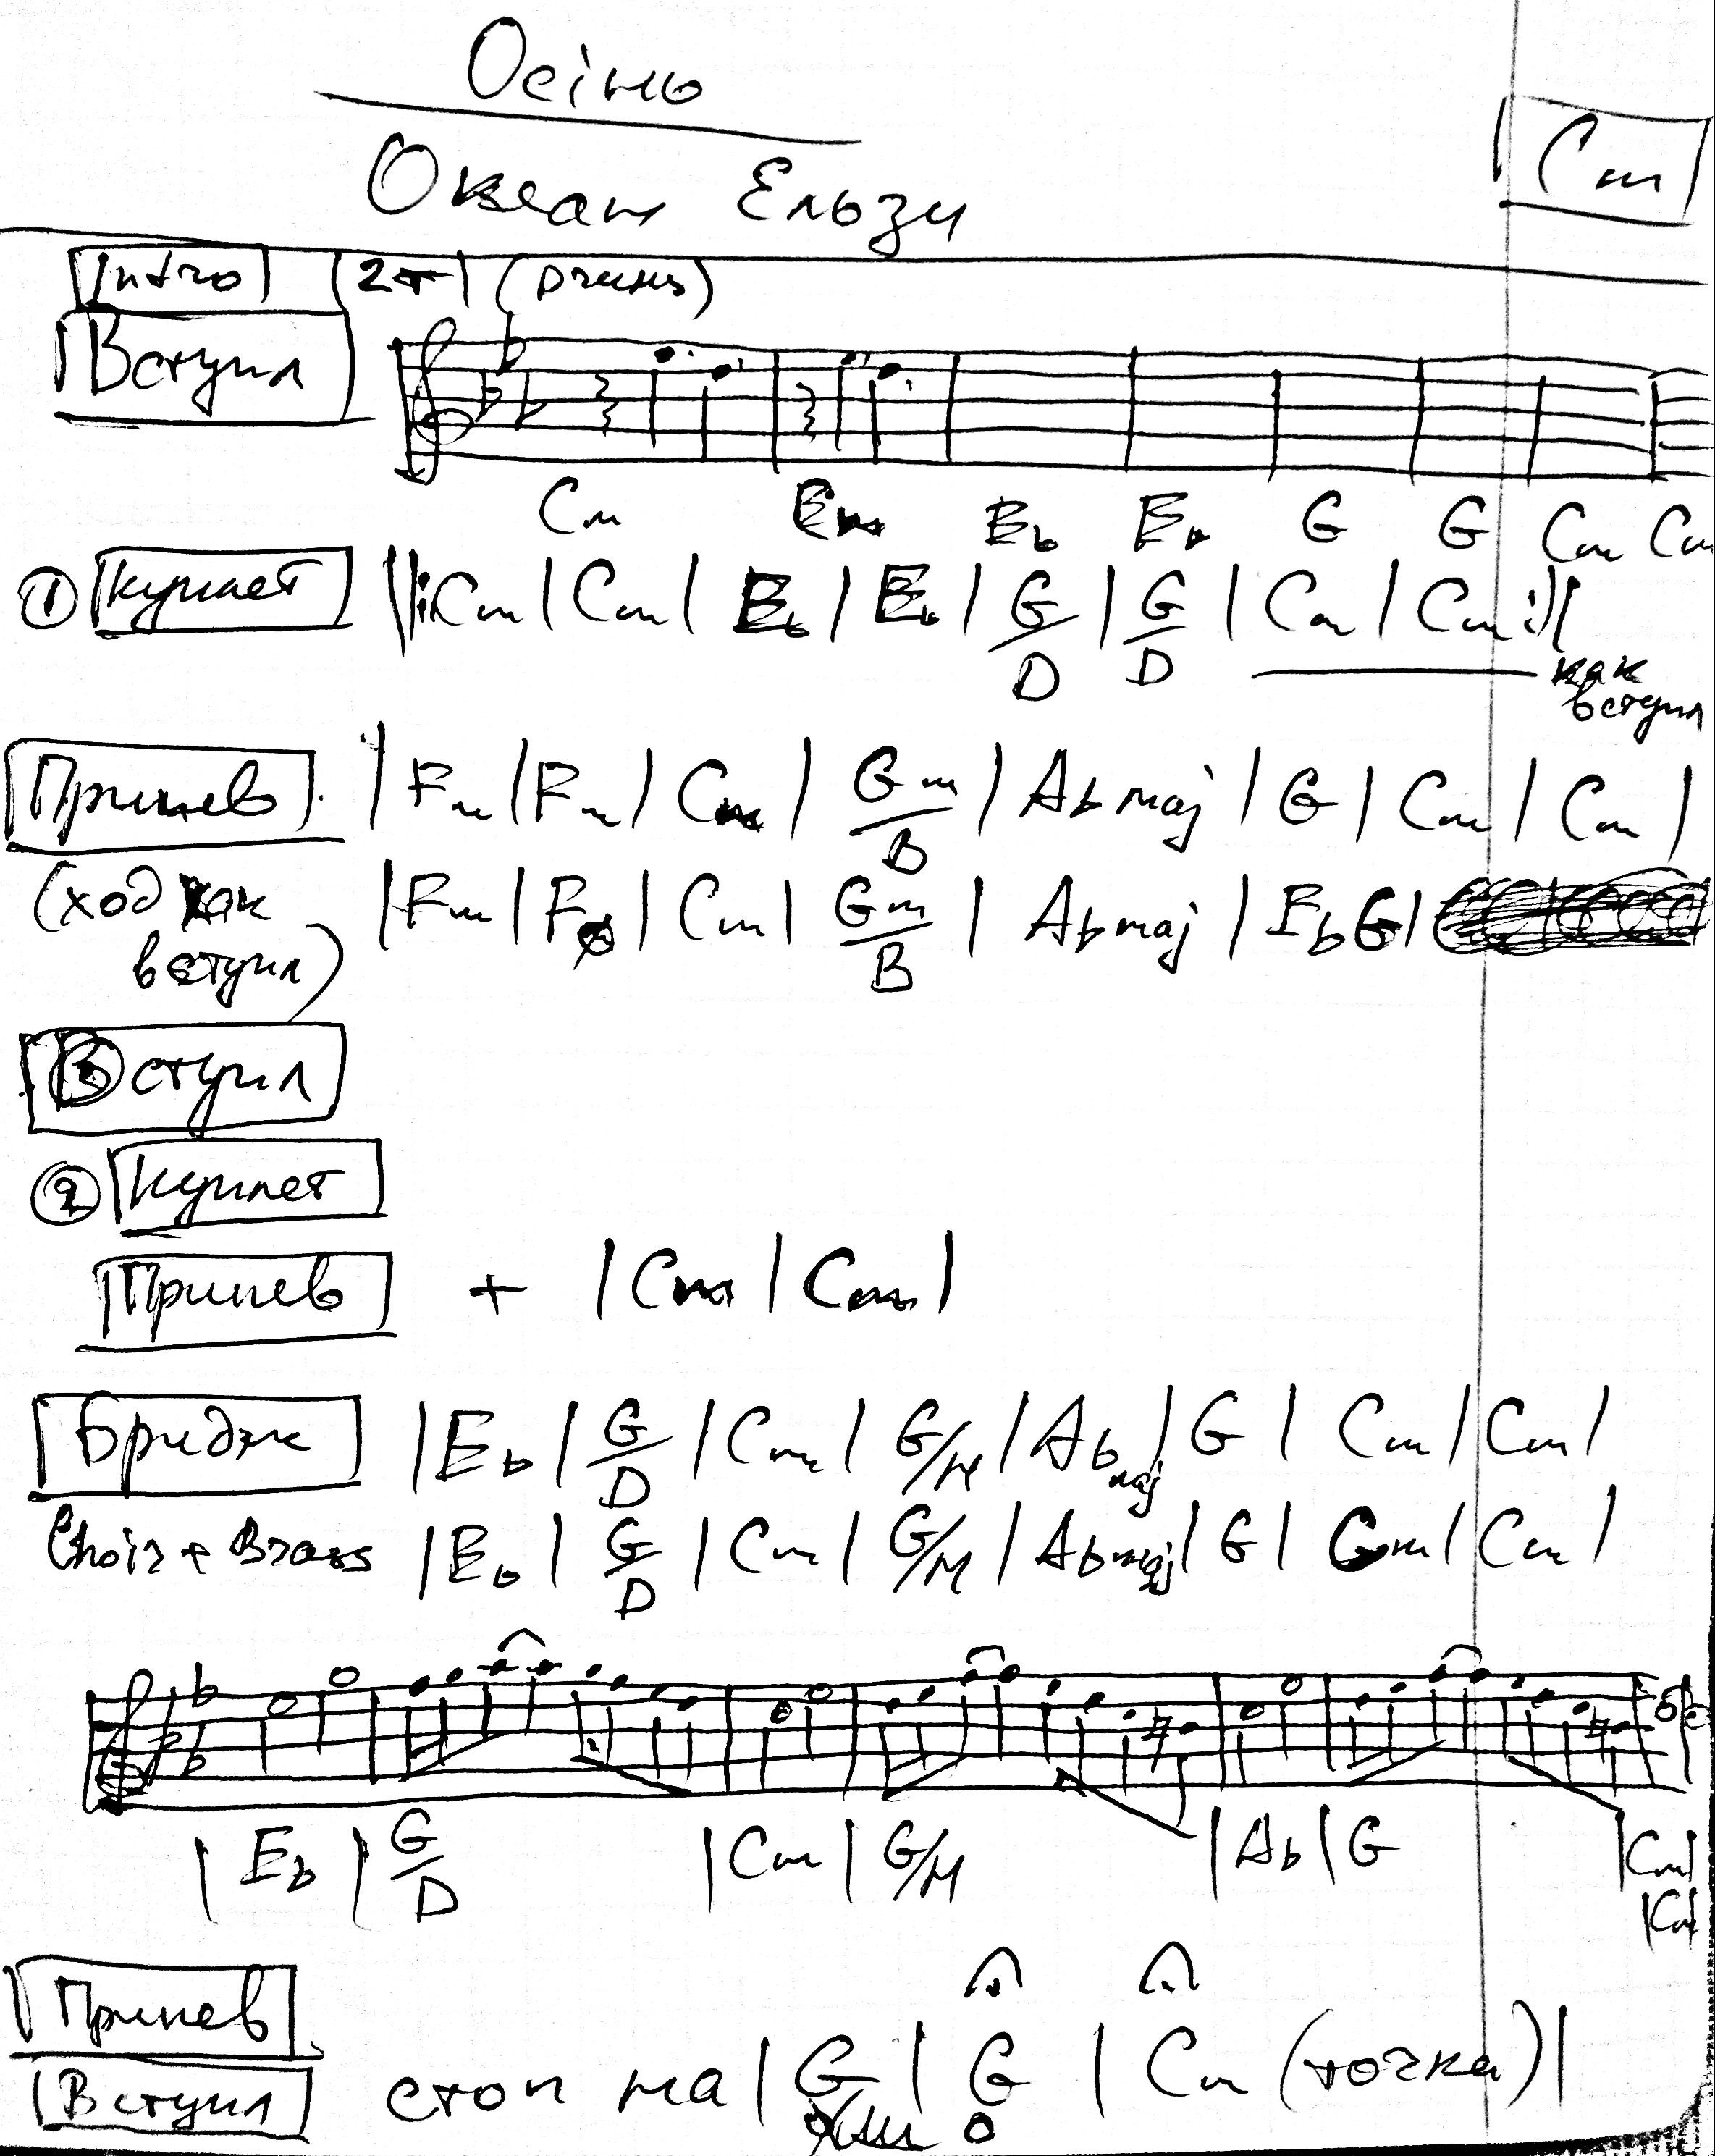 Осінь
Океан Ельзи
Cm
Intro | 2т |
Вступл
Cm Cm Eb Eb G G Cm Cm
① Куплет ||: Cm | Cm | Eb | Eb | G/D | G/D | Cm | Cm :||
как вступл
Припев | Fm | Fm | Cm | Gm/B | Ab maj | G | Cm | Cm |
(ход как вступл) | Fm | Fm | Cm | Gm/B | Ab maj | Eb G |
Вступл
② Куплет
Припев + | Cm | Cm |
Бридж | Eb | G/D | Cm | G/H | Ab maj | G | Cm | Cm |
Choir + Brass | Eb | G/D | Cm | G/H | Ab maj | G | Cm | Cm |
| Eb | G/D | Cm | G/H | Ab | G | Cm |
| Cm |
Припев
Вступл стоп на | G | G | Cm (точка) |